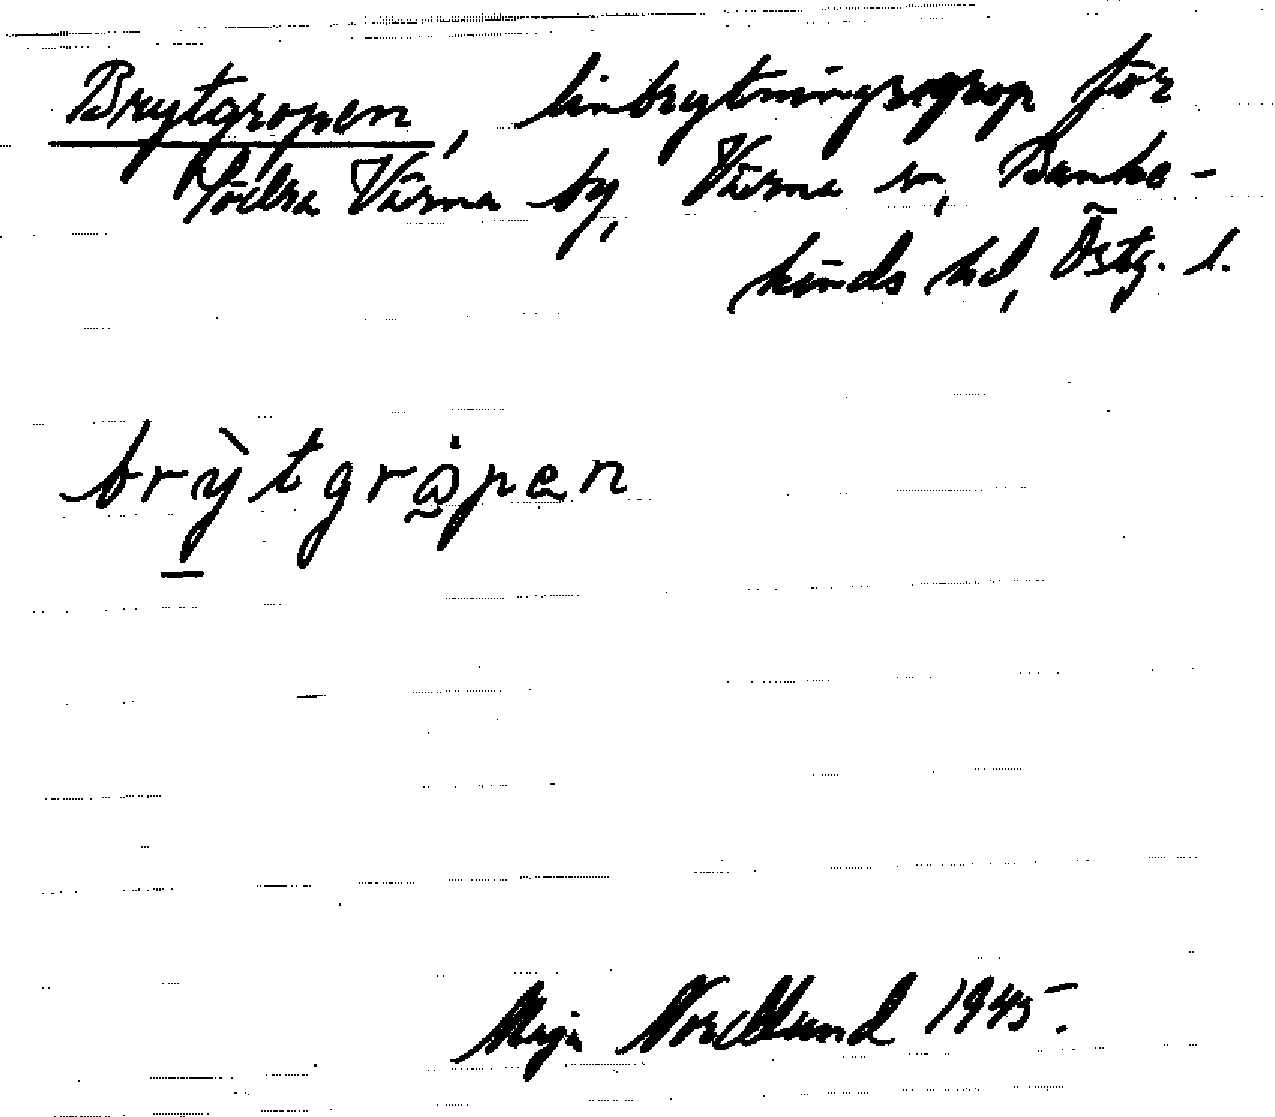 Brytgropen, linbrytningsgrop för
Södra Värna by, Värna sn, Banke-
kinds hd, Östg. l.
brỳtgrȯpen
Maja Nordlund 1945.